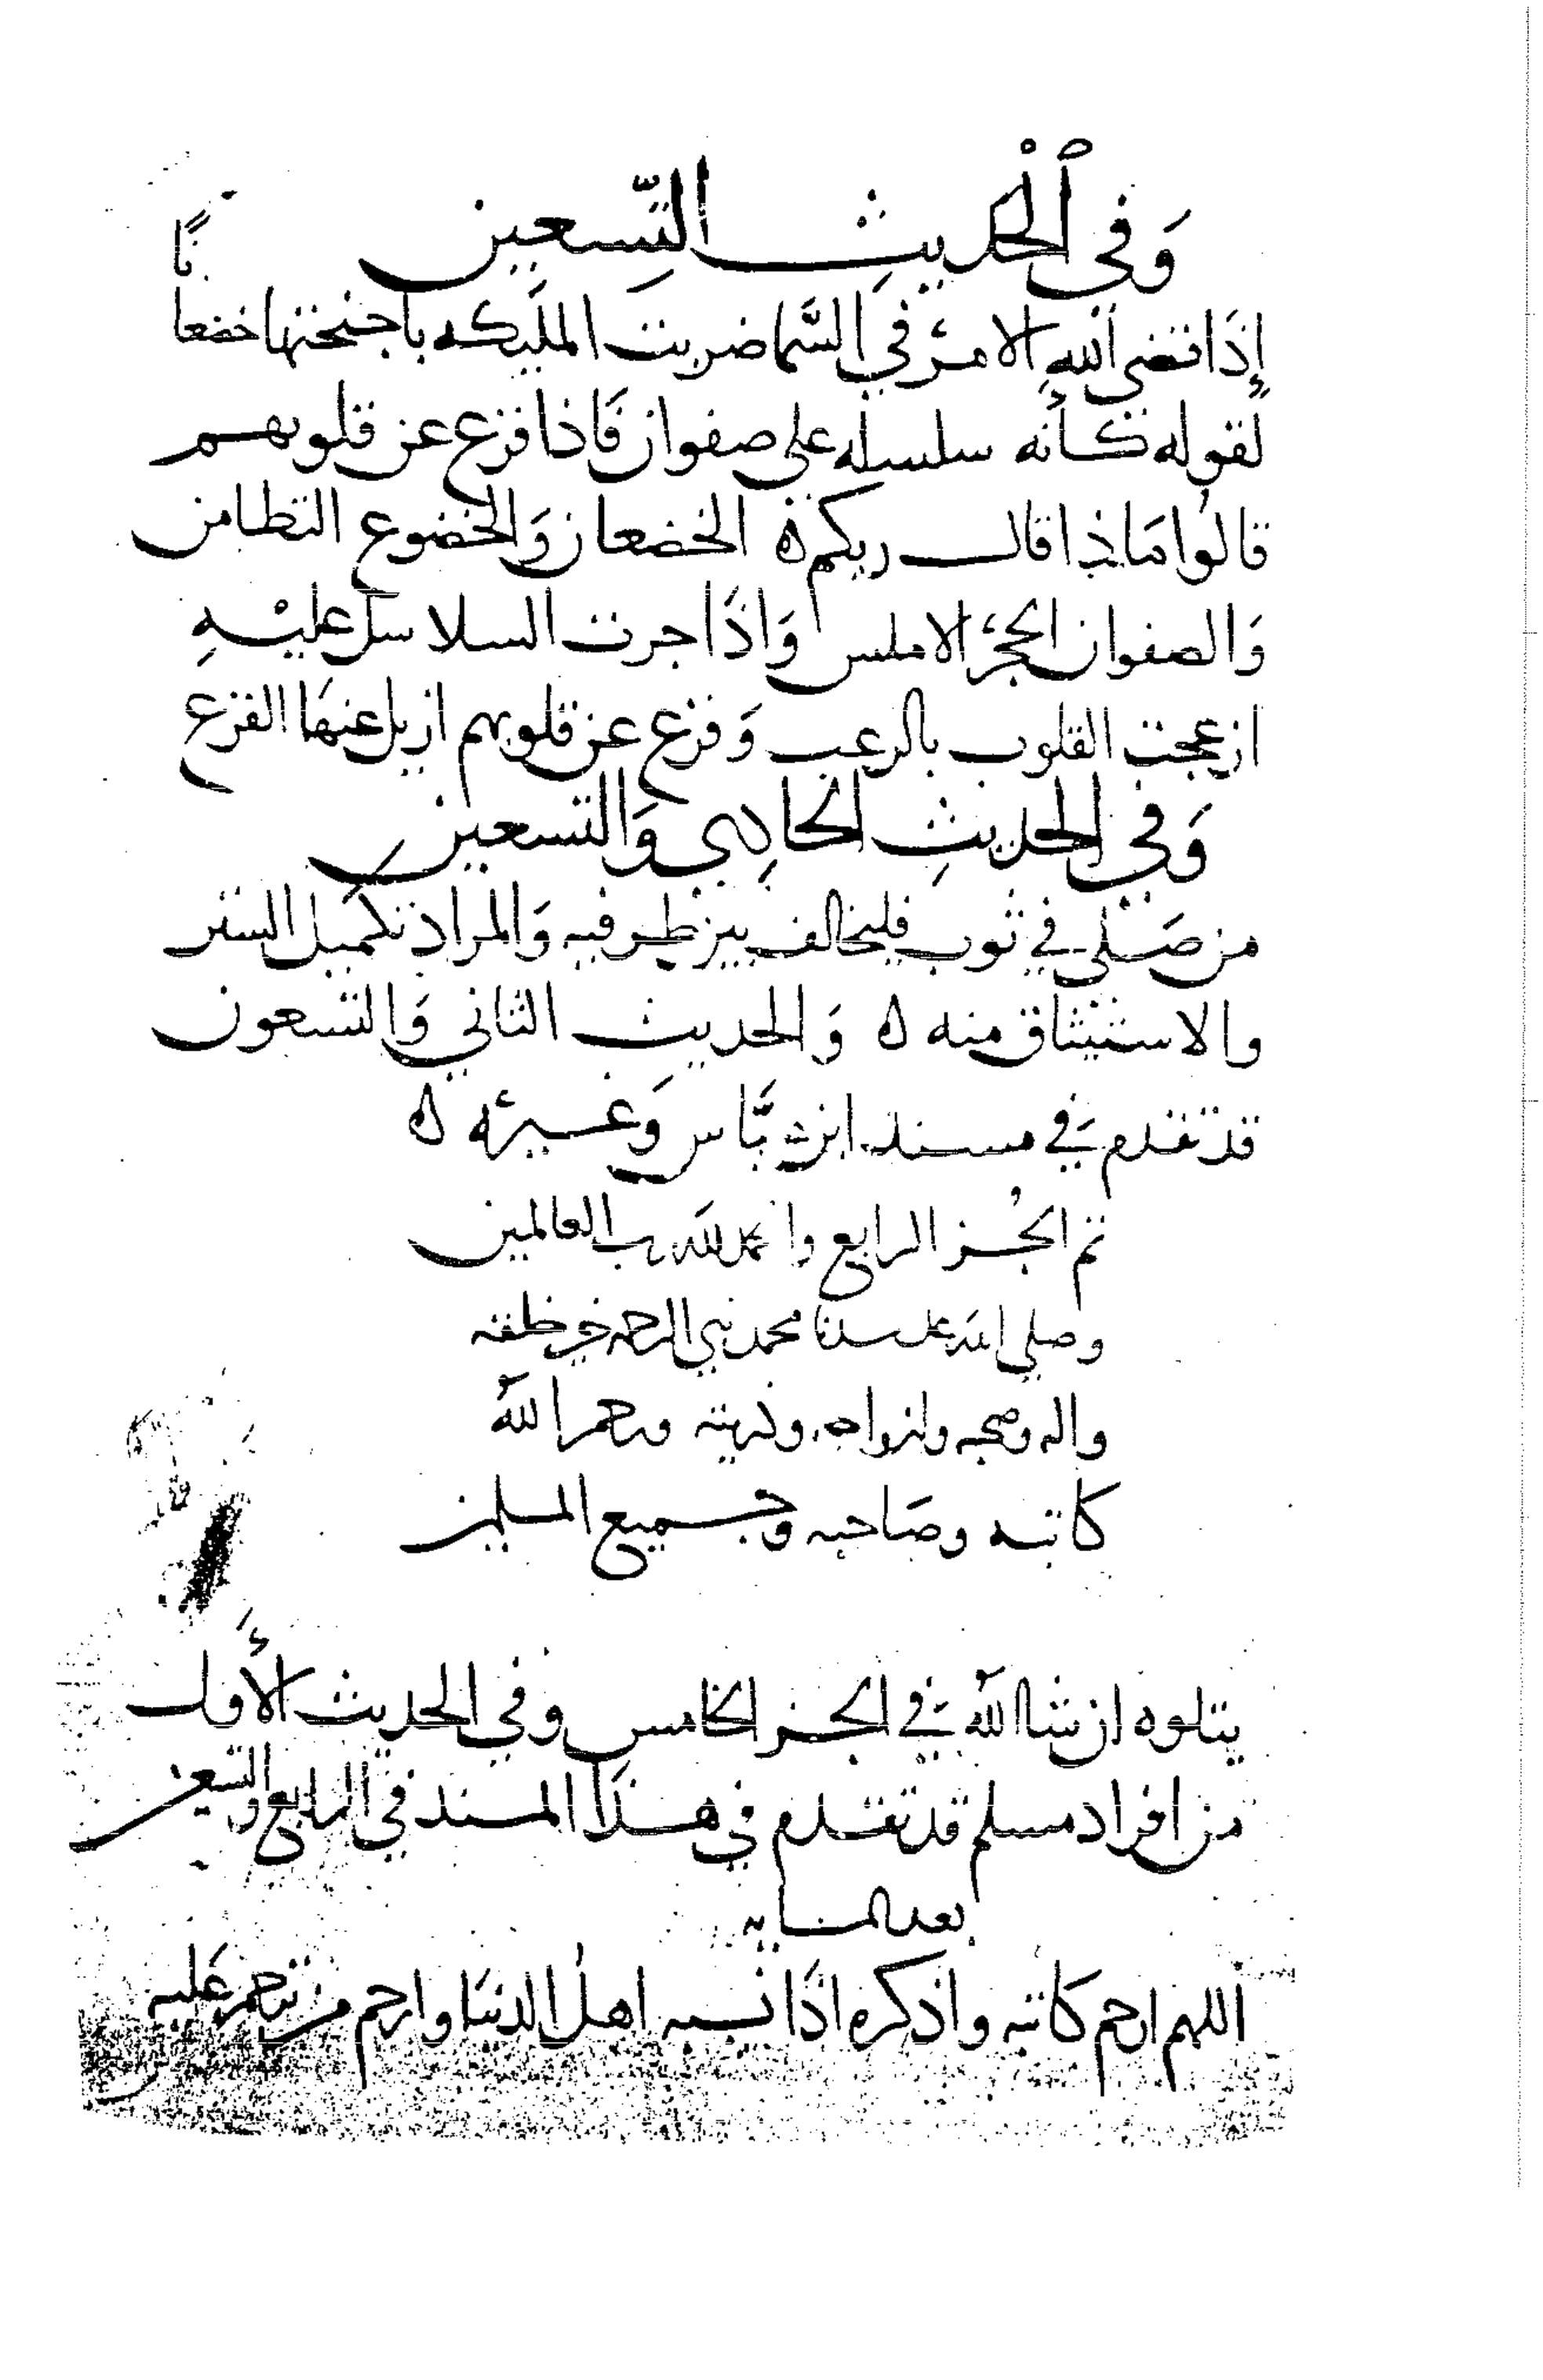 وَفي الحديثِ التِّسعين
إذَا قضى اللهِ الامرَ في السَّما ضربت الملَيكه باجنحتها خضعانًا
لقوله كأنه سلسله على صفوان فَاذا فزع عن قلوبهم
قالوُا مَاذا قال ربكم ه الخضعان وَالخضوع التطامن
وَالصفوان الحجرُ الاملس وَاذَا جرت السلاسل عليْهِ
ازعجت القلوب بالرعب وَفزع عن قلوبهم ازيل عنهَا الفزع
وَفي الحديثِ الحادِي وَالتسعين
من صَلى في ثوب فليخالف بين طرفيه وَالمراد تكميل الستر
والاستيثاق منه ه وَالحديث الثاني وَالتسعون
قد تقدم في مسند ابن عبَّاس وَغيره ه
تم الجُز الرابع والحمد لله رب العالمين
وصلى الله على سيدنا محمد نبي الرحمه خير خلقه
واله وصحبه وازواجه وذريته ورحم اللهُ
كاتبه وصَاحبه وجميع المسلمين
يتلوه ان شا اللهُ في الجز الخامس وفي الحديث الأَول
من افراد مسلم قد تقدم في هذَا المسند في الرابع والتسعين
بعد المايه
اللهم ارحم كاتبه واذكره اذَا نسيه اهل الدنيَا وارحم من ترحم عَليه